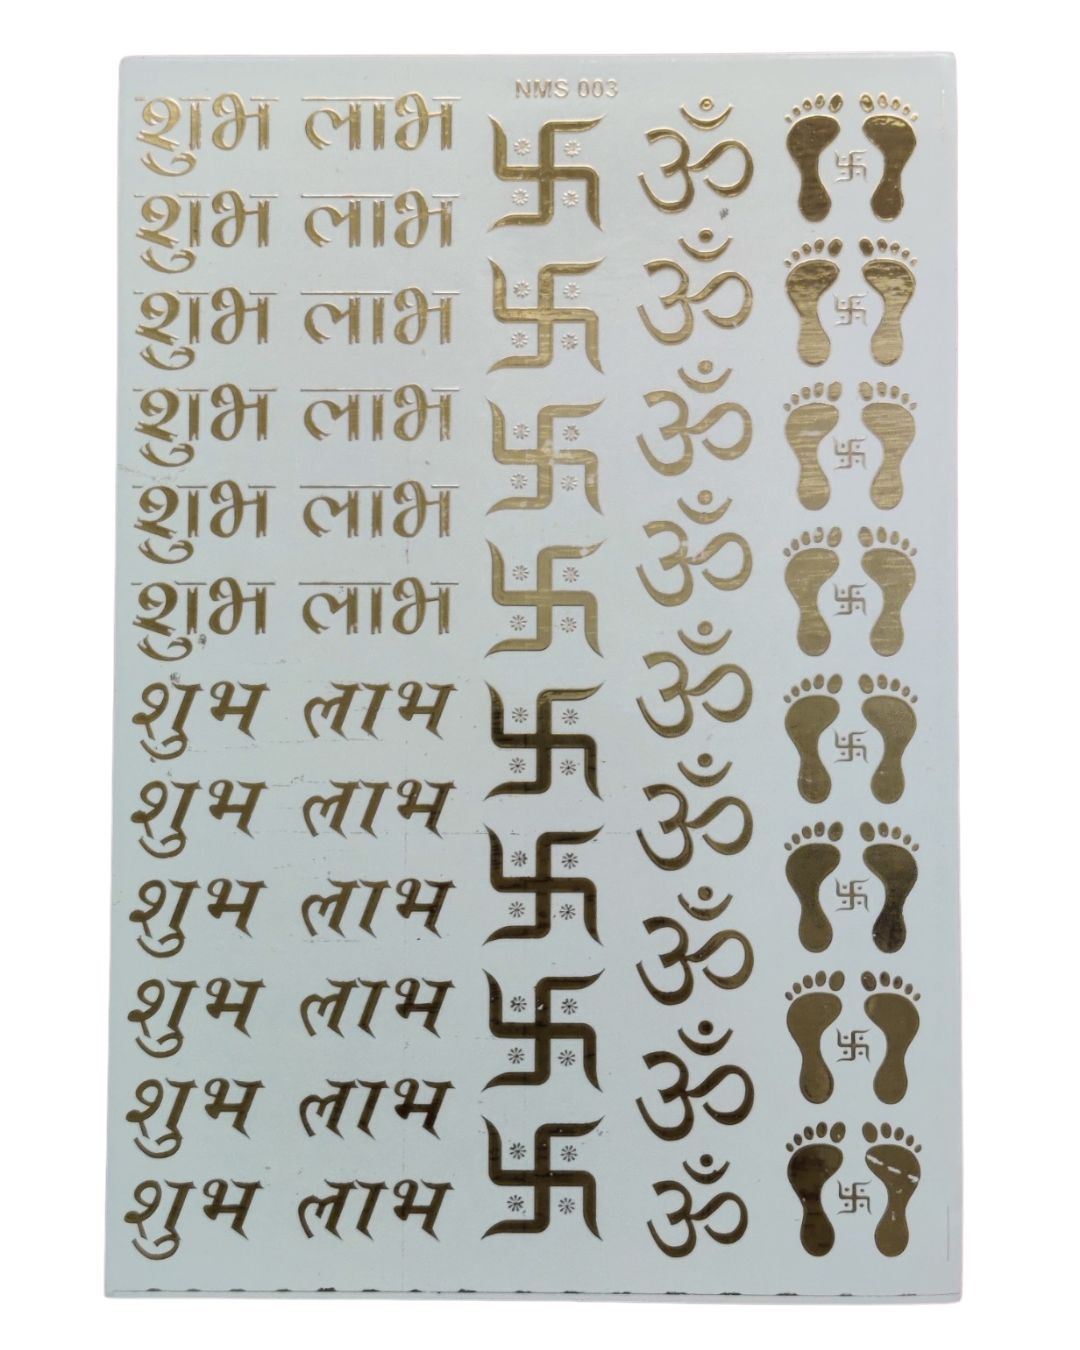 NMS 003
शुभ लाभ ॐ
शुभ लाभ ॐ
शुभ लाभ ॐ
शुभ लाभ ॐ
शुभ लाभ ॐ
शुभ लाभ ॐ
शुभ लाभ ॐ
शुभ लाभ ॐ
शुभ लाभ ॐ
शुभ लाभ
शुभ लाभ
शुभ लाभ